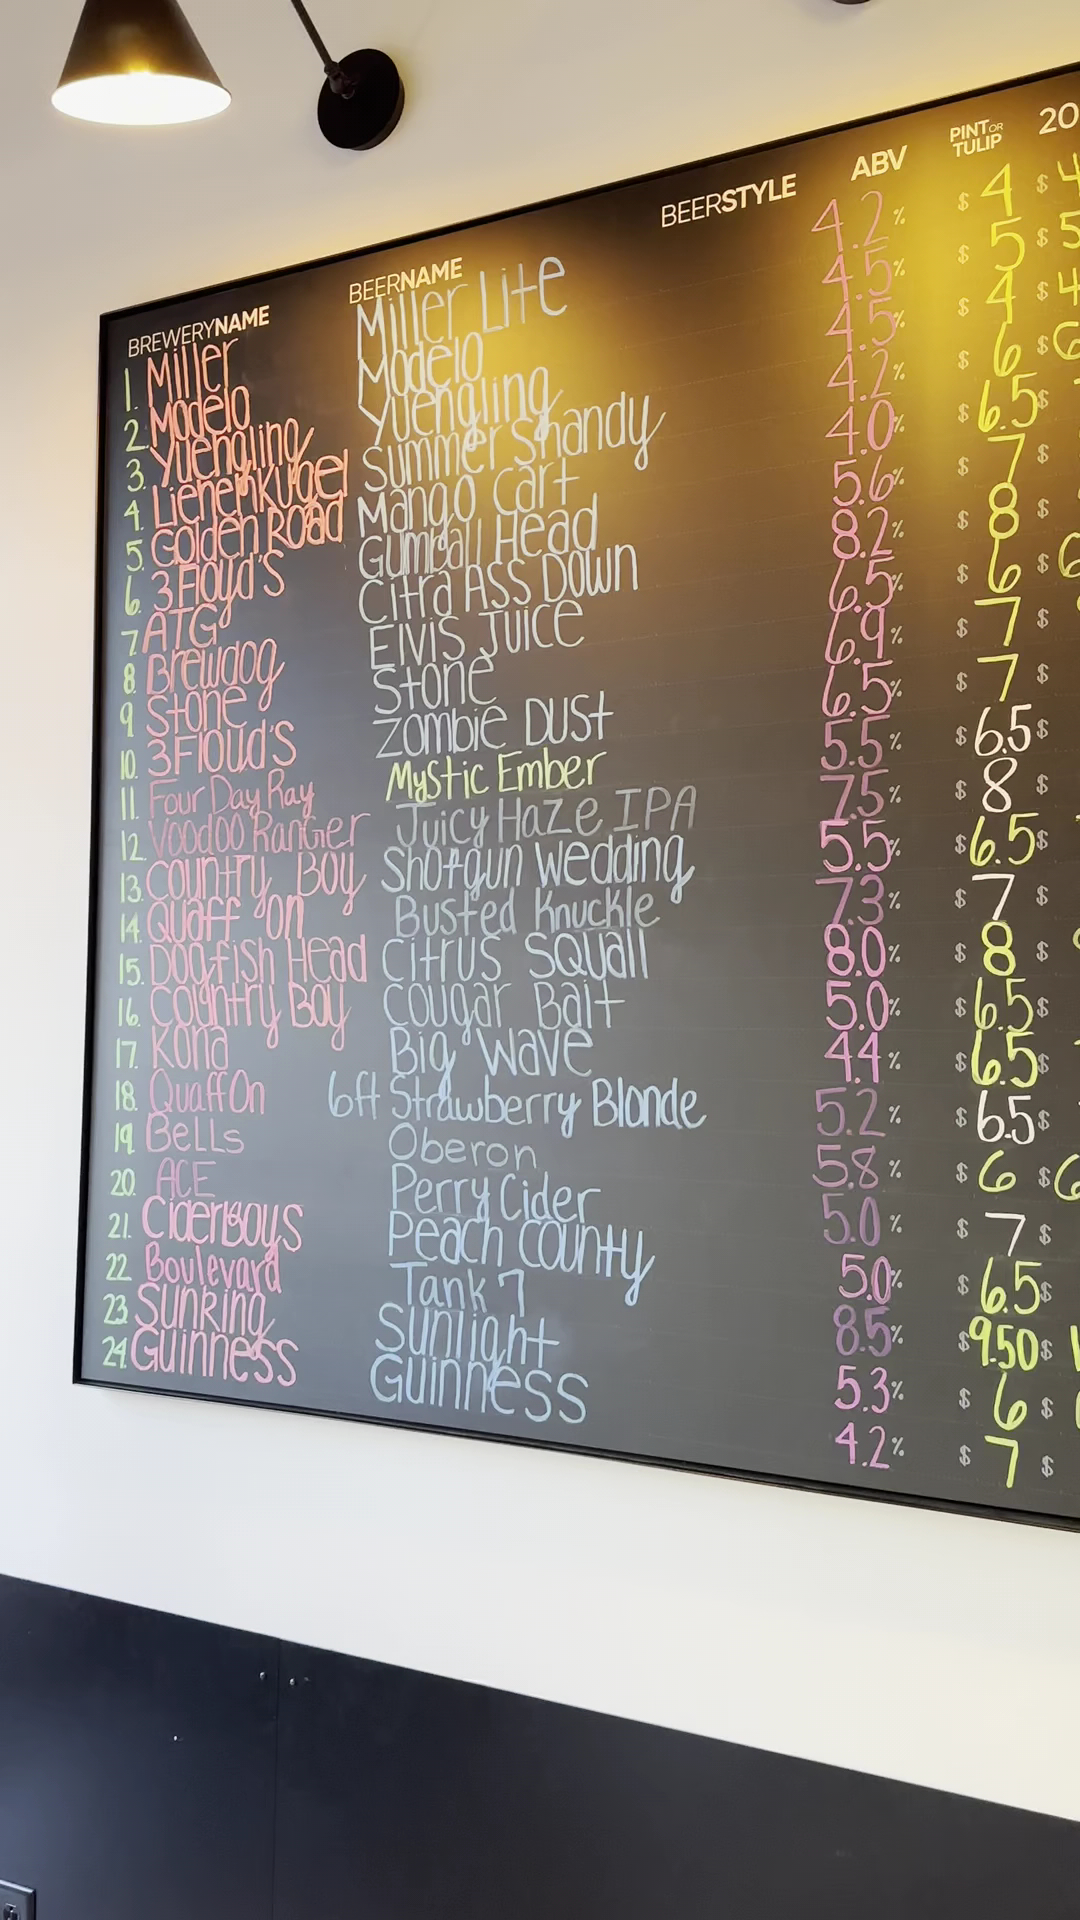 BREWERYNAME BEERNAME BEERSTYLE ABV PINT OR TULIP 20
1. Miller Miller Lite 4.2% $4 $
2. Modelo Modelo 4.5% $5 $5
3. Yuengling Yuengling 4.5% $4 $
4. Lienenkugel Summer Shandy 4.2% $6 $6
5. Golden Road Mango Cart 4.0% $6.5 $
6. 3 Floyd's Gumball Head 5.6% $7 $
7. ATG Citra Ass Down 8.2% $8 $
8. Brewdog Elvis Juice 6.5% $6 $6
9. Stone Stone 6.9% $7 $
10. 3 Floyd's Zombie Dust 6.5% $7 $
11. Four Day Ray Mystic Ember 5.5% $6.5 $
12. Voodoo Ranger Juicy Haze IPA 7.5% $8 $
13. Country Boy Shotgun Wedding 5.5% $6.5 $
14. Quaff On Busted Knuckle 7.3% $7 $
15. Dogfish Head Citrus Squall 8.0% $8 $
16. Country Boy Cougar Bait 5.0% $6.5 $
17. Kona Big Wave 4.4% $6.5 $
18. Quaff On 6ft Strawberry Blonde 5.2% $6.5 $
19. Bells Oberon 5.8% $6 $6
20. ACE Perry Cider 5.0% $7 $
21. Ciderboys Peach County 5.0% $6.5 $
22. Boulevard Tank 7 8.5% $9.50 $
23. Sunking Sunlight 5.3% $6 $
24. Guinness Guinness 4.2% $7 $